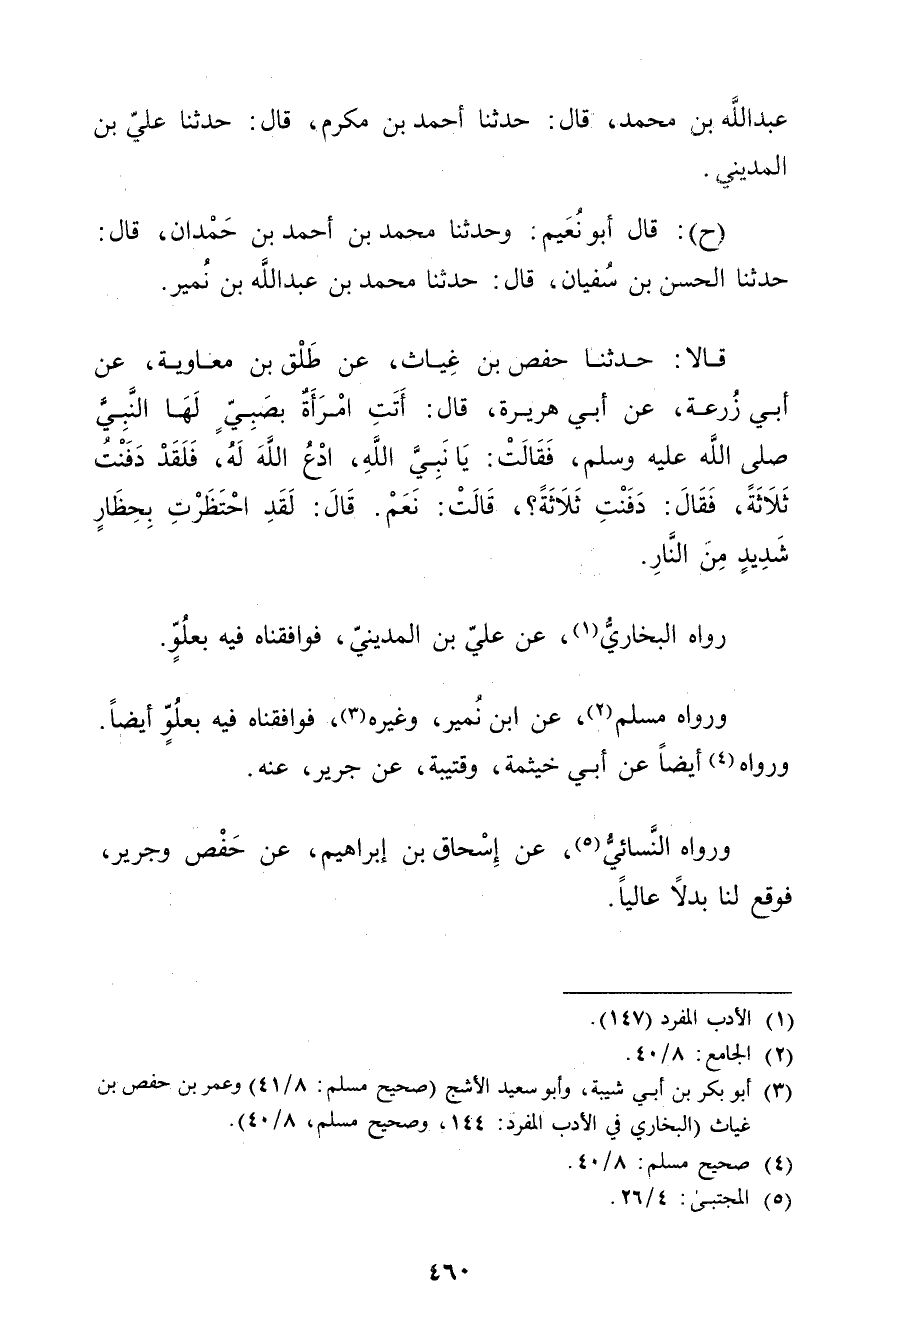 عبداللَّه بن محمد، قال: حدثنا أحمد بن مكرم، قال: حدثنا عليّ بن
المديني.
(ح): قال أبو نُعَيم: وحدثنا محمد بن أحمد بن حَمْدان، قال:
حدثنا الحسن بن سُفيان، قال: حدثنا محمد بن عبداللَّه بن نُمير.
قالا: حدثنا حفص بن غِياث، عن طَلْق بن معاوية، عن
أبي زُرعة، عن أبي هريرة، قال: أَتَتِ امْرَأَةٌ بصَبِيّ لَهَا النَّبِيَّ
صلى اللَّه عليه وسلم، فَقَالَتْ: يَا نَبِيَّ اللَّهِ، ادْعُ اللَّهَ لَهُ، فَلَقَدْ دَفَنْتُ
ثَلَاثَةً، فَقَالَ: دَفَنْتِ ثَلَاثَةً؟، قَالَتْ: نَعَمْ. قَالَ: لَقَدِ احْتَظَرْتِ بِحِظَارٍ
شَدِيدٍ مِنَ النَّارِ.
رواه البخاريُّ(١)، عن عليّ بن المدينيّ، فوافقناه فيه بعلُوٍّ.
ورواه مسلم(٢)، عن ابن نُمير، وغيره(٣)، فوافقناه فيه بعلُوٍّ أيضاً.
ورواه(٤) أيضاً عن أبي خيثمة، وقتيبة، عن جرير، عنه.
ورواه النَّسائيُّ(٥)، عن إِسْحاق بن إبراهيم، عن حَفْص وجرير،
فوقع لنا بدلاً عالياً.
(١) الأدب المفرد (١٤٧).
(٢) الجامع: ٤٠/٨.
(٣) أبو بكر بن أبي شيبة، وأبو سعيد الأشج (صحيح مسلم: ٤١/٨) وعمر بن حفص بن
غياث (البخاري في الأدب المفرد: ١٤٤، وصحيح مسلم، ٤٠/٨).
(٤) صحيح مسلم: ٤٠/٨.
(٥) المجتبىٰ: ٢٦/٤.
٤٦٠